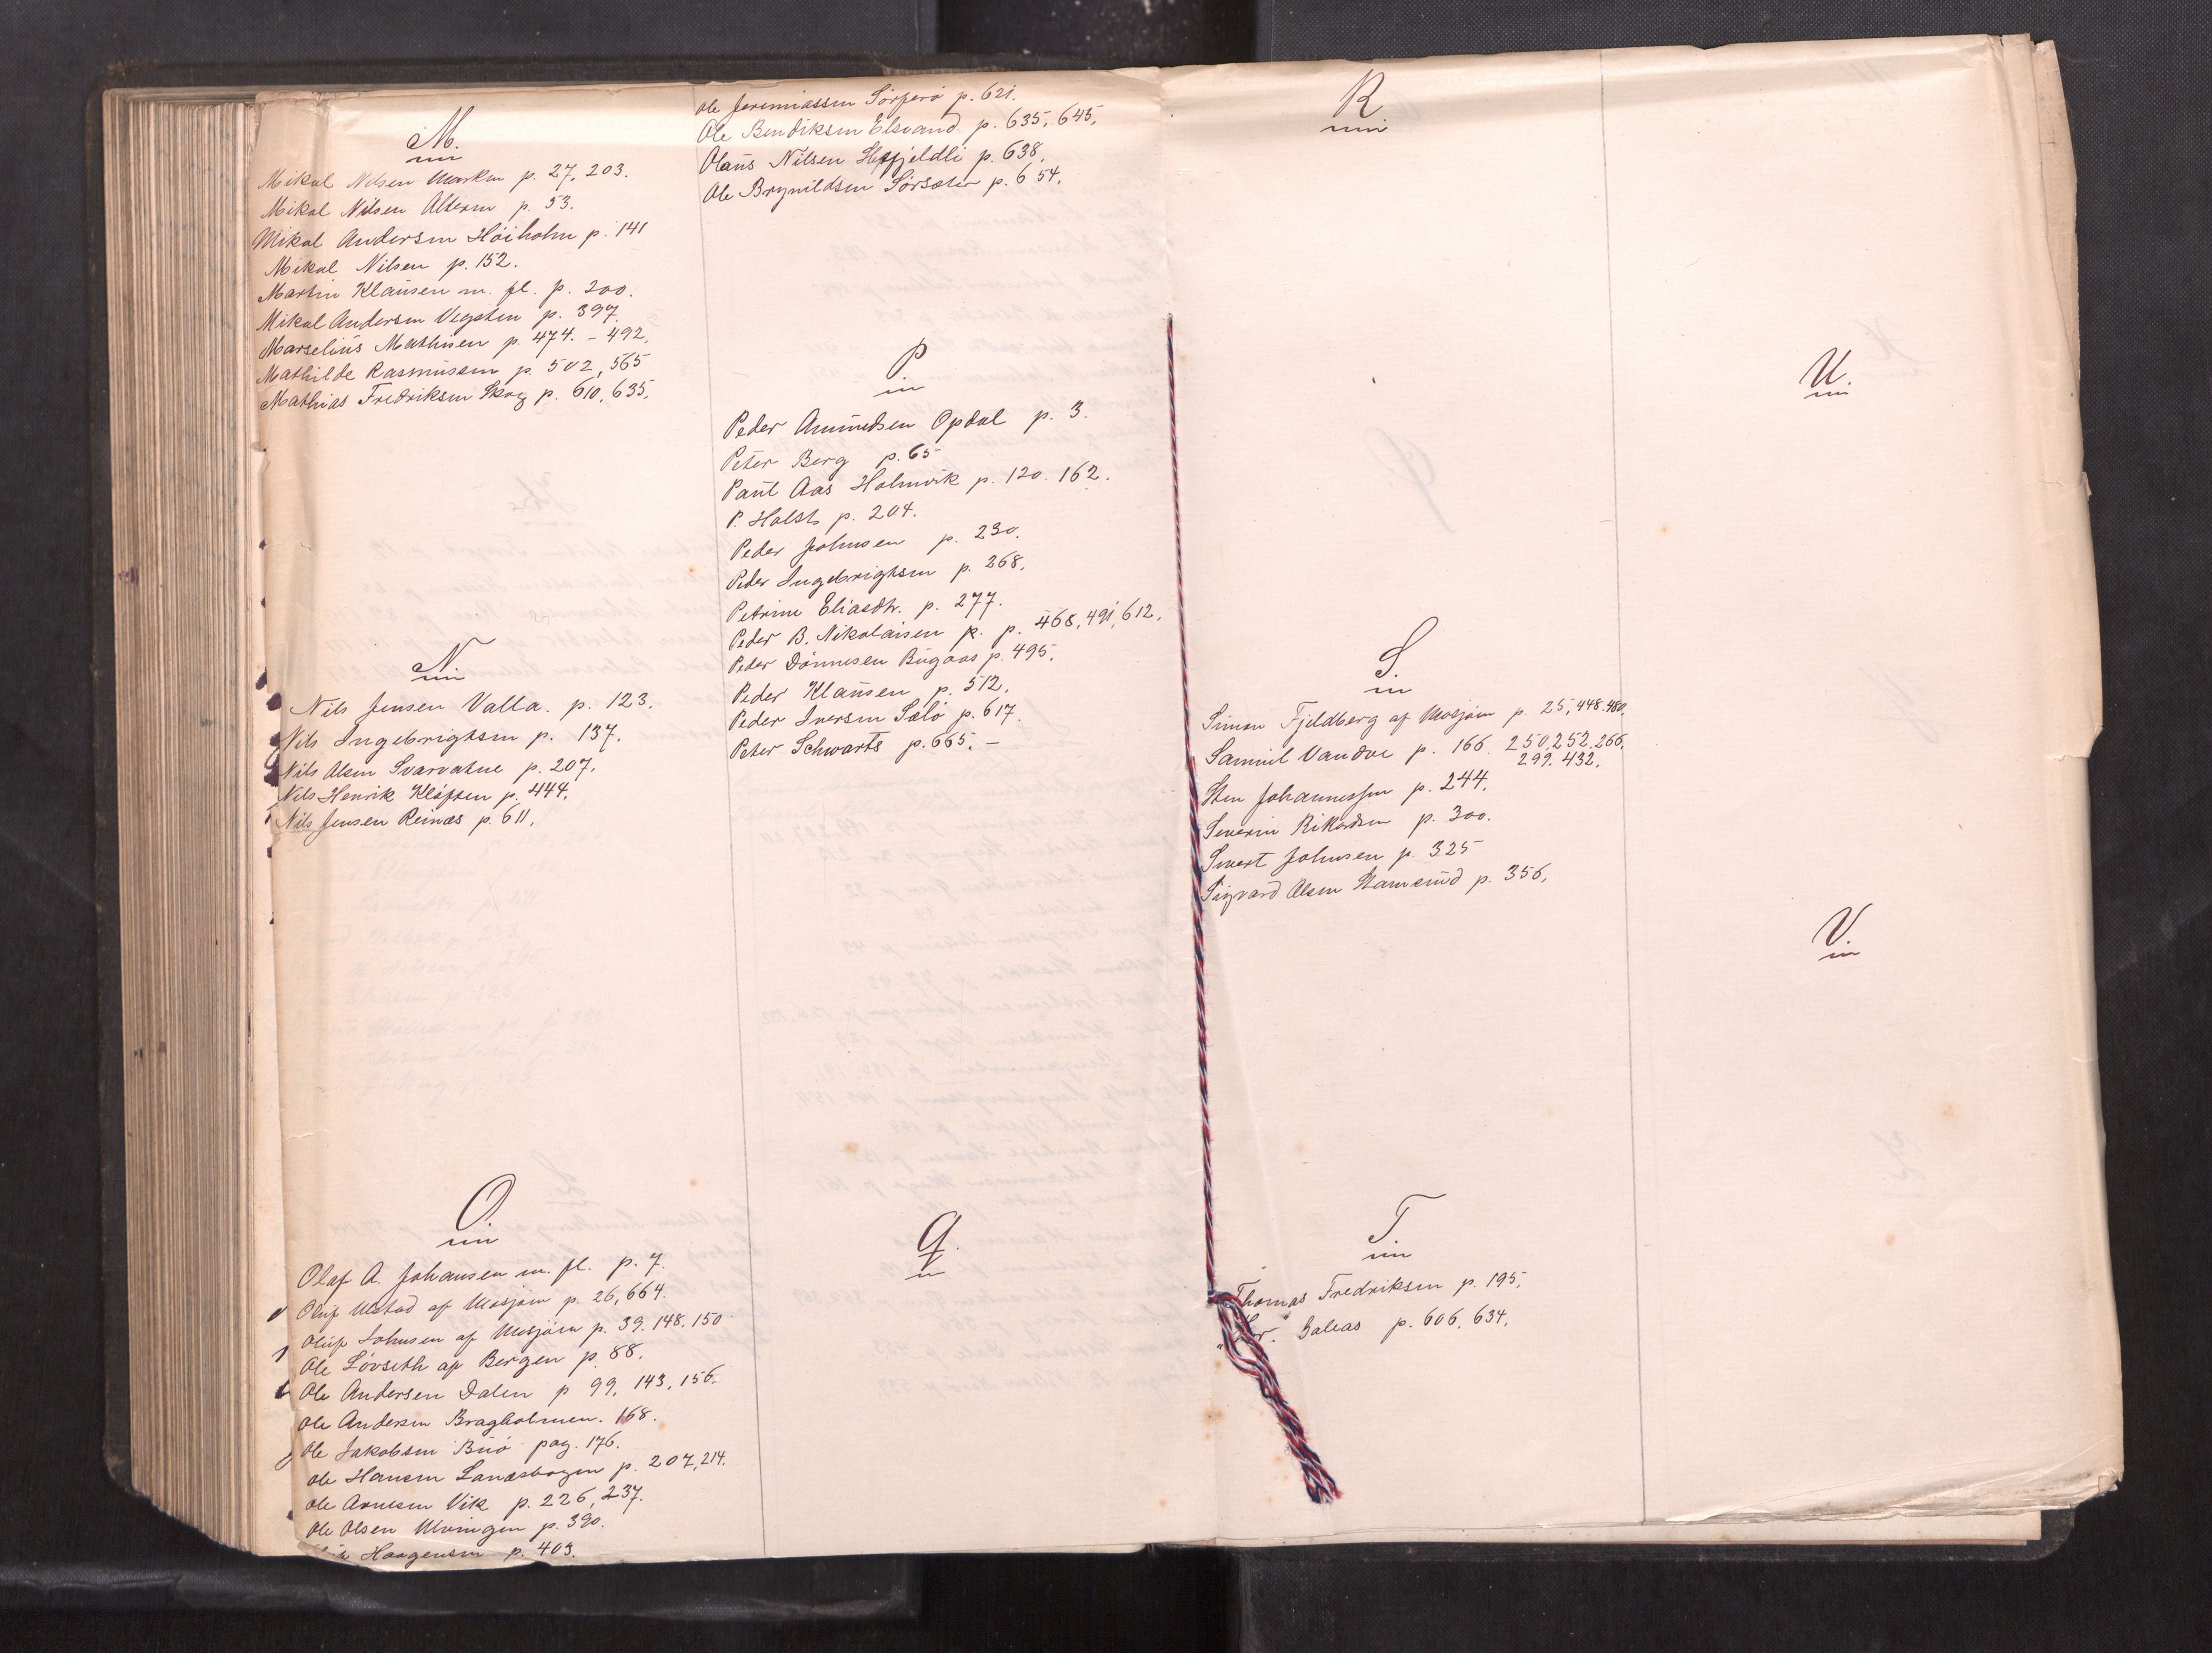 M.
Mikal Nilsen Marken p. 27, 203.
Mikal Nilsen Alteren p. 53.
Mikal Andersen Höiholm p. 141
Mikal Nilsen p. 152.
Martin Klaüsen m. fl. p. 200.
Mikal Andersen Vegsten p. 397.
Marselius Mathisen p. 474. - 492.
Mathilde Rasmüssen p. 502, 565
Mathias Fredriksen Skog p. 610, 635.
N.
Nils Jensen Valla. p. 123.
Nils Ingebrigtsen p. 137.
Nils Olsen Svarvatne p. 207.
Nils Henrik Kløften p. 444.
Nils Jensen Reinæs p. 611.
O.
Olaf A. Johansen m. fl. p. 7.
Olüf Ulstad af Mosjøen p. 26, 664.
Olüf Johnsen af Mosjøen p. 39. 148. 150
Ole Lövseth af Bergen p. 88.
Ole Andersen Dalen p 99, 143, 156.
Ole Andersen Bragholmen. 168.
Ole Jakobsen Büö pag. 176.
Ole Hansen Landsbogen p. 207, 214.
Ole Arnesen Vik p. 226, 237.
Ole Olsen Ulvingen p. 390.
Haagensen p. 403.
Ole Jeremiassen Sörferö p. 621.
Ole Bendiksen Elsvand p. 635, 645,
Olaüs Nilsen Hessfjeldli p. 638.
Ole Brynildsen Sörsæter p. 654.
P
Peder Amündsen Opdal p. 3.
Peter Berg p. 65
Paül Aas Holmvik p. 120. 162.
P. Holst p. 204.
Peder Johnsen p. 230.
Peder Ingebrigtsen p. 268.
Petrine Eliasdtr. p. 277.
Peder B. Nikolaisen p. p. 468, 491, 612.
Peder Dönnesen Bügaas p. 495.
Peder Klaüsen p. 512.
Peder Iversen Sælö p. 617.
Peter Schwarts p. 665. -
Q.
R
S.
Simon Fjeldberg af Mosjøen p. 25, 448. 480.
Samüel Vandve p. 166. 250. 252. 266.
299. 432.
Sten Johannessen p. 244.
Severin Rikardsen p. 300.
Sivert Johnsen p. 325
Sigvard Olsen Stamsünd p. 356.
T.
Thomas Fredriksen p. 195.
Galeas p. 606, 634.
U.
V.